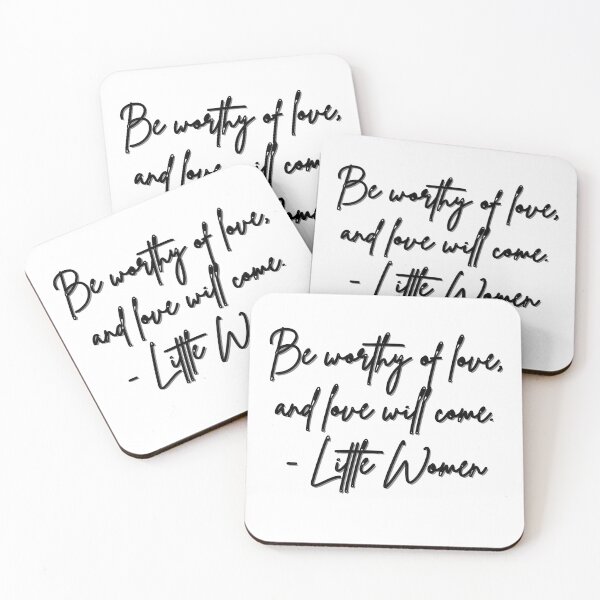 Be worthy of love,
and love will com
Be worthy of love,
and love will come.
- Little Women
Be worthy of love,
and love will come.
- Little W
Be worthy of love,
and love will come.
- Little Women